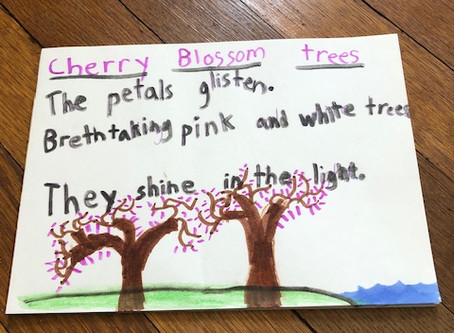 Cherry Blossom trees
The petals glisten.
Brethtaking pink and white trees
They shine in the light.